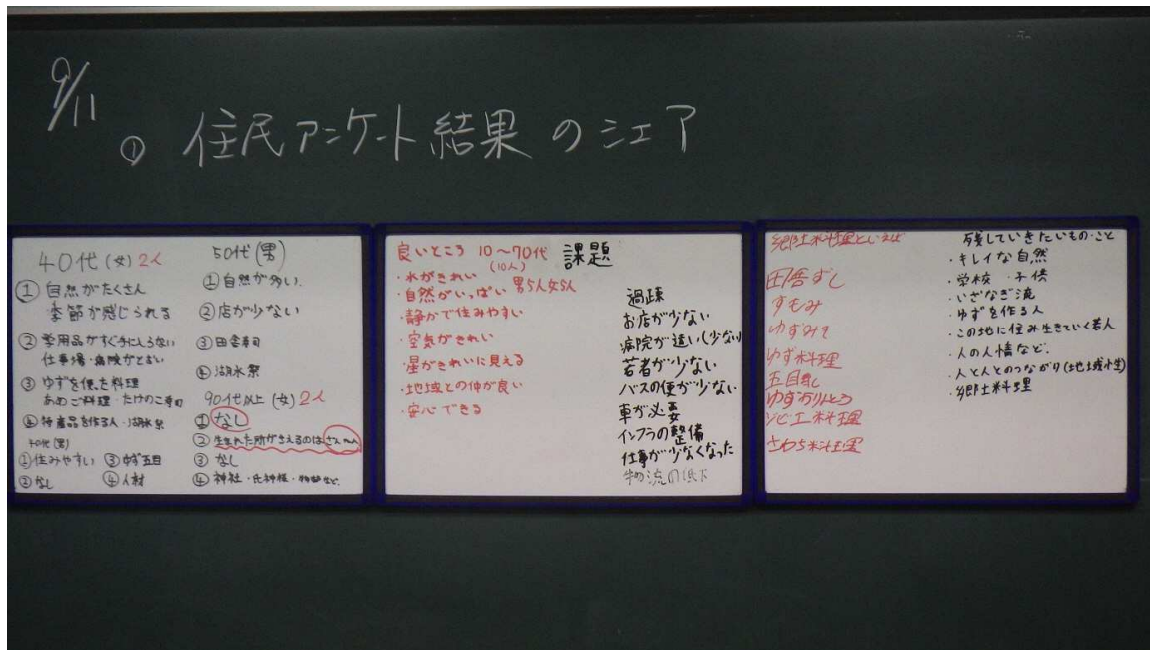 9/11
① 住民アンケート結果のシェア
40代(女) 2人
① 自然がたくさん
季節が感じられる
② 学用品がすぐ手に入らない
仕事場・病院がとおい
③ ゆずを使った料理
あめご料理・たけのこ寿司
④ 特産品を作る人・湖水祭
40代(男)
① 住みやすい ③ ゆず五目
② なし ④ 人材
50代(男)
① 自然が多い.
② 店が少ない
③ 田舎寿司
④ 湖水祭
90代以上(女) 2人
① なし
② 生まれた所がきえるのはざんねん
③ なし
④ 神社・氏神様・
良いところ 10〜70代
(10人)
男5人女5人
・水がきれい
・自然がいっぱい
・静かで住みやすい
・空気がきれい
・星がきれいに見える
・地域との仲が良い
・安心できる
課題
過疎
お店が少ない
病院が遠い(少ない)
若者が少ない
バスの便が少ない
車が必要
インフラの整備
仕事が少なくなった
物流の低下
郷土料理といえば
田舎ずし
すもみ
ゆずみそ
ゆず料理
五目
ゆずおりとう
ジビエ料理
さわち料理
残していきたいもの・こと
・キレイな自然
・学校 ・子供
・いざなぎ流
・ゆずを作る人
・この地に住み生きていく若人
・人の人情など.
・人と人とのつながり(地域性)
・郷土料理